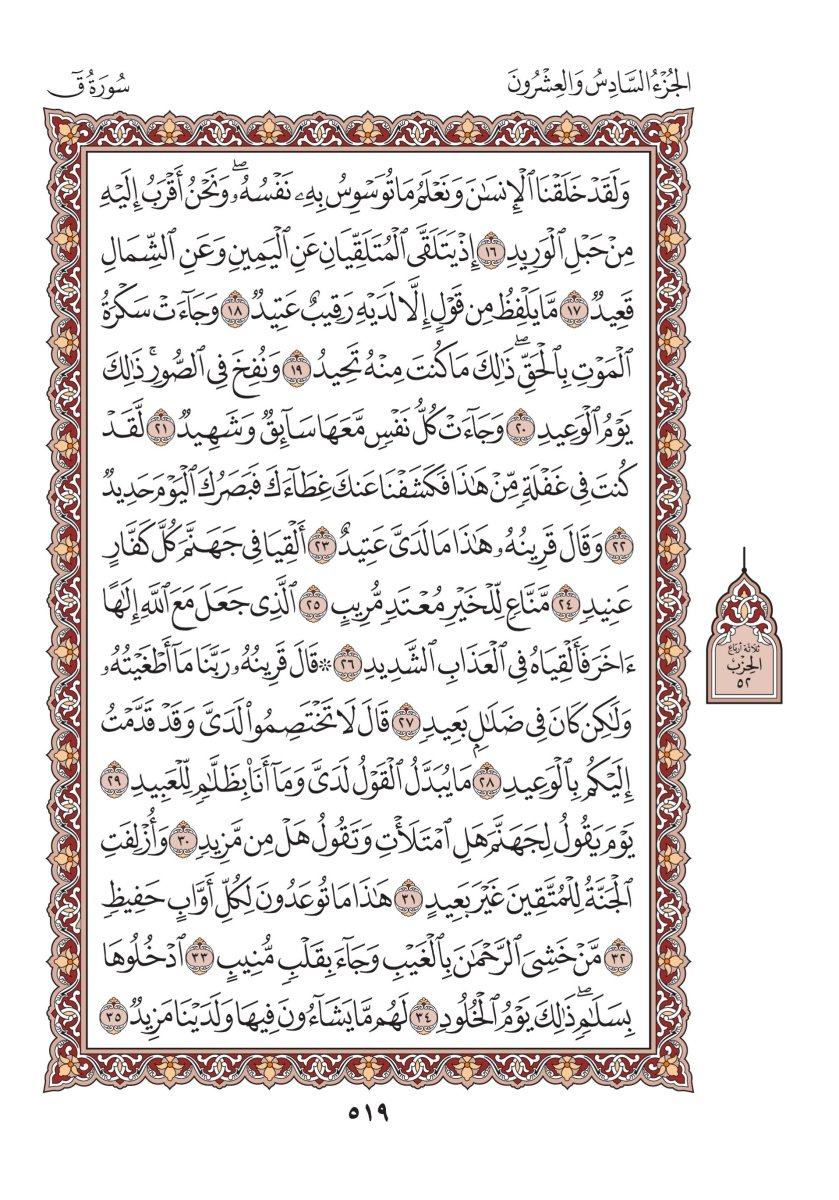 الجُزْءُ السَّادِسُ وَالعِشْرُونَ
سُورَةُ قٓ
وَلَقَدْ خَلَقْنَا ٱلْإِنسَٰنَ وَنَعْلَمُ مَا تُوَسْوِسُ بِهِۦ نَفْسُهُۥۖ وَنَحْنُ أَقْرَبُ إِلَيْهِ
مِنْ حَبْلِ ٱلْوَرِيدِ ١٦ إِذْ يَتَلَقَّى ٱلْمُتَلَقِّيَانِ عَنِ ٱلْيَمِينِ وَعَنِ ٱلشِّمَالِ
قَعِيدٌ ١٧ مَّا يَلْفِظُ مِن قَوْلٍ إِلَّا لَدَيْهِ رَقِيبٌ عَتِيدٌ ١٨ وَجَآءَتْ سَكْرَةُ
ٱلْمَوْتِ بِٱلْحَقِّۖ ذَٰلِكَ مَا كُنتَ مِنْهُ تَحِيدُ ١٩ وَنُفِخَ فِى ٱلصُّورِۚ ذَٰلِكَ
يَوْمُ ٱلْوَعِيدِ ٢٠ وَجَآءَتْ كُلُّ نَفْسٍ مَّعَهَا سَآئِقٌ وَشَهِيدٌ ٢١ لَّقَدْ
كُنتَ فِى غَفْلَةٍ مِّنْ هَٰذَا فَكَشَفْنَا عَنكَ غِطَآءَكَ فَبَصَرُكَ ٱلْيَوْمَ حَدِيدٌ
٢٢ وَقَالَ قَرِينُهُۥ هَٰذَا مَا لَدَىَّ عَتِيدٌ ٢٣ أَلْقِيَا فِى جَهَنَّمَ كُلَّ كَفَّارٍ
عَنِيدٍ ٢٤ مَّنَّاعٍ لِّلْخَيْرِ مُعْتَدٍ مُّرِيبٍ ٢٥ ٱلَّذِى جَعَلَ مَعَ ٱللَّهِ إِلَٰهًا
ءَاخَرَ فَأَلْقِيَاهُ فِى ٱلْعَذَابِ ٱلشَّدِيدِ ٢٦ ۞ قَالَ قَرِينُهُۥ رَبَّنَا مَآ أَطْغَيْتُهُۥ
وَلَٰكِن كَانَ فِى ضَلَٰلٍۭ بَعِيدٍ ٢٧ قَالَ لَا تَخْتَصِمُوا۟ لَدَىَّ وَقَدْ قَدَّمْتُ
إِلَيْكُم بِٱلْوَعِيدِ ٢٨ مَا يُبَدَّلُ ٱلْقَوْلُ لَدَىَّ وَمَآ أَنَا۠ بِظَلَّٰمٍ لِّلْعَبِيدِ ٢٩
يَوْمَ نَقُولُ لِجَهَنَّمَ هَلِ ٱمْتَلَأْتِ وَتَقُولُ هَلْ مِن مَّزِيدٍ ٣٠ وَأُزْلِفَتِ
ٱلْجَنَّةُ لِلْمُتَّقِينَ غَيْرَ بَعِيدٍ ٣١ هَٰذَا مَا تُوعَدُونَ لِكُلِّ أَوَّابٍ حَفِيظٍ
٣٢ مَّنْ خَشِىَ ٱلرَّحْمَٰنَ بِٱلْغَيْبِ وَجَآءَ بِقَلْبٍ مُّنِيبٍ ٣٣ ٱدْخُلُوهَا
بِسَلَٰمٍۖ ذَٰلِكَ يَوْمُ ٱلْخُلُودِ ٣٤ لَهُم مَّا يَشَآءُونَ فِيهَا وَلَدَيْنَا مَزِيدٌ ٣٥
ثلاثة أرباع
الحِزْب
٥٢
٥١٩